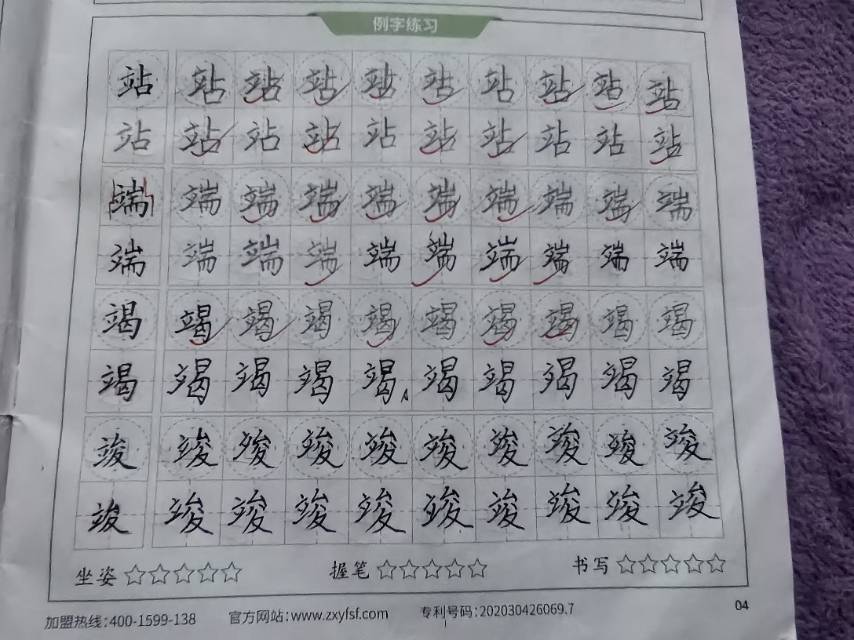 例字练习
站站站站站站站站站站
站站站站站站站站站站
端端端端端端端端端端
端端端端端端端端端端
竭竭竭竭竭竭竭竭竭竭
竭竭竭竭竭竭竭竭竭竭
竣竣竣竣竣竣竣竣竣竣
竣竣竣竣竣竣竣竣竣竣
坐姿☆☆☆☆☆ 握笔☆☆☆☆☆ 书写☆☆☆☆☆
加盟热线:400-1599-138 官方网站:www.zxyfsf.com 专利号码:202030426069.7 04